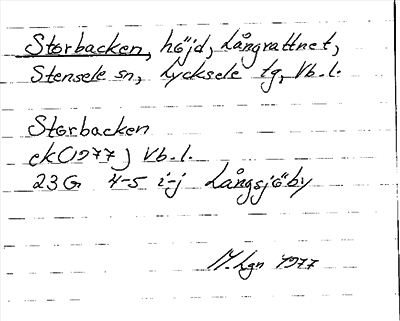 Storbacken, höjd, Långvattnet,
Stensele sn, Lycksele tg, Vb. l.
Storbacken
ek (1977) Vb. l.
23G 4-5 i-j Långsjöby
M. Lgn 1977